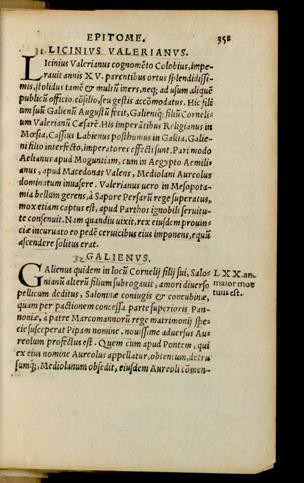 EPITOME. 358
32 LICINIVS VALERIANVS.
Licinius Valerianus cognomēto Colobius, impe-
rauit annis XV. parentibus ortus splendidissi-
mis, stolidus tamē & multū iners, neq; ad usum aliquē
publicū officio, cōsilio, seu gestis accōmodatus. Hic filiū
suū Galienū Augustū fecit, Galieniq; filiū Corneli-
um Valerianū Cæsarē. His imperātibus Religianus in
Mœsia, Cassius Labienus posthumus in Gallia, Galie-
ni filio interfecto, imperatores effecti sunt. Pari modo
Aelianus apud Moguntiam, tum in Aegypto Aemili-
anus, apud Macedonas Valens, Mediolani Aureolus
dominatum inuasere. Valerianus uero in Mesopota-
mia bellum gerens, à Sapore Persarū rege superatus,
mox etiam captus est, apud Parthos ignobili seruitu-
te consenuit. Nam quandiu uixit, rex eiusdem prouin-
ciæ incuruato eo pedē ceruicibus eius imponens, equū
ascendere solitus erat.
32 GALIENVS.
Galienus quidem in locū Cornelij filij sui, Salo-
nianū alterū filium subrogauit, amori diuerso
pellicum deditus, Saloninæ coniugis & concubinæ,
quam per pactionem concessa parte superioris Pan-
noniæ, à patre Marcomannorū rege matrimonij spe-
cie susceperat Pipam nomine. nouissime aduersus Au-
reolum profectus est. Quem cum apud Pontem, qui
ex eius nomine Aureolus appellatur, obtentum, detru
sumq;, Mediolanum obsedit, eiusdem Aureoli cōmen-
LXX. an.
maior mor
tuus est.